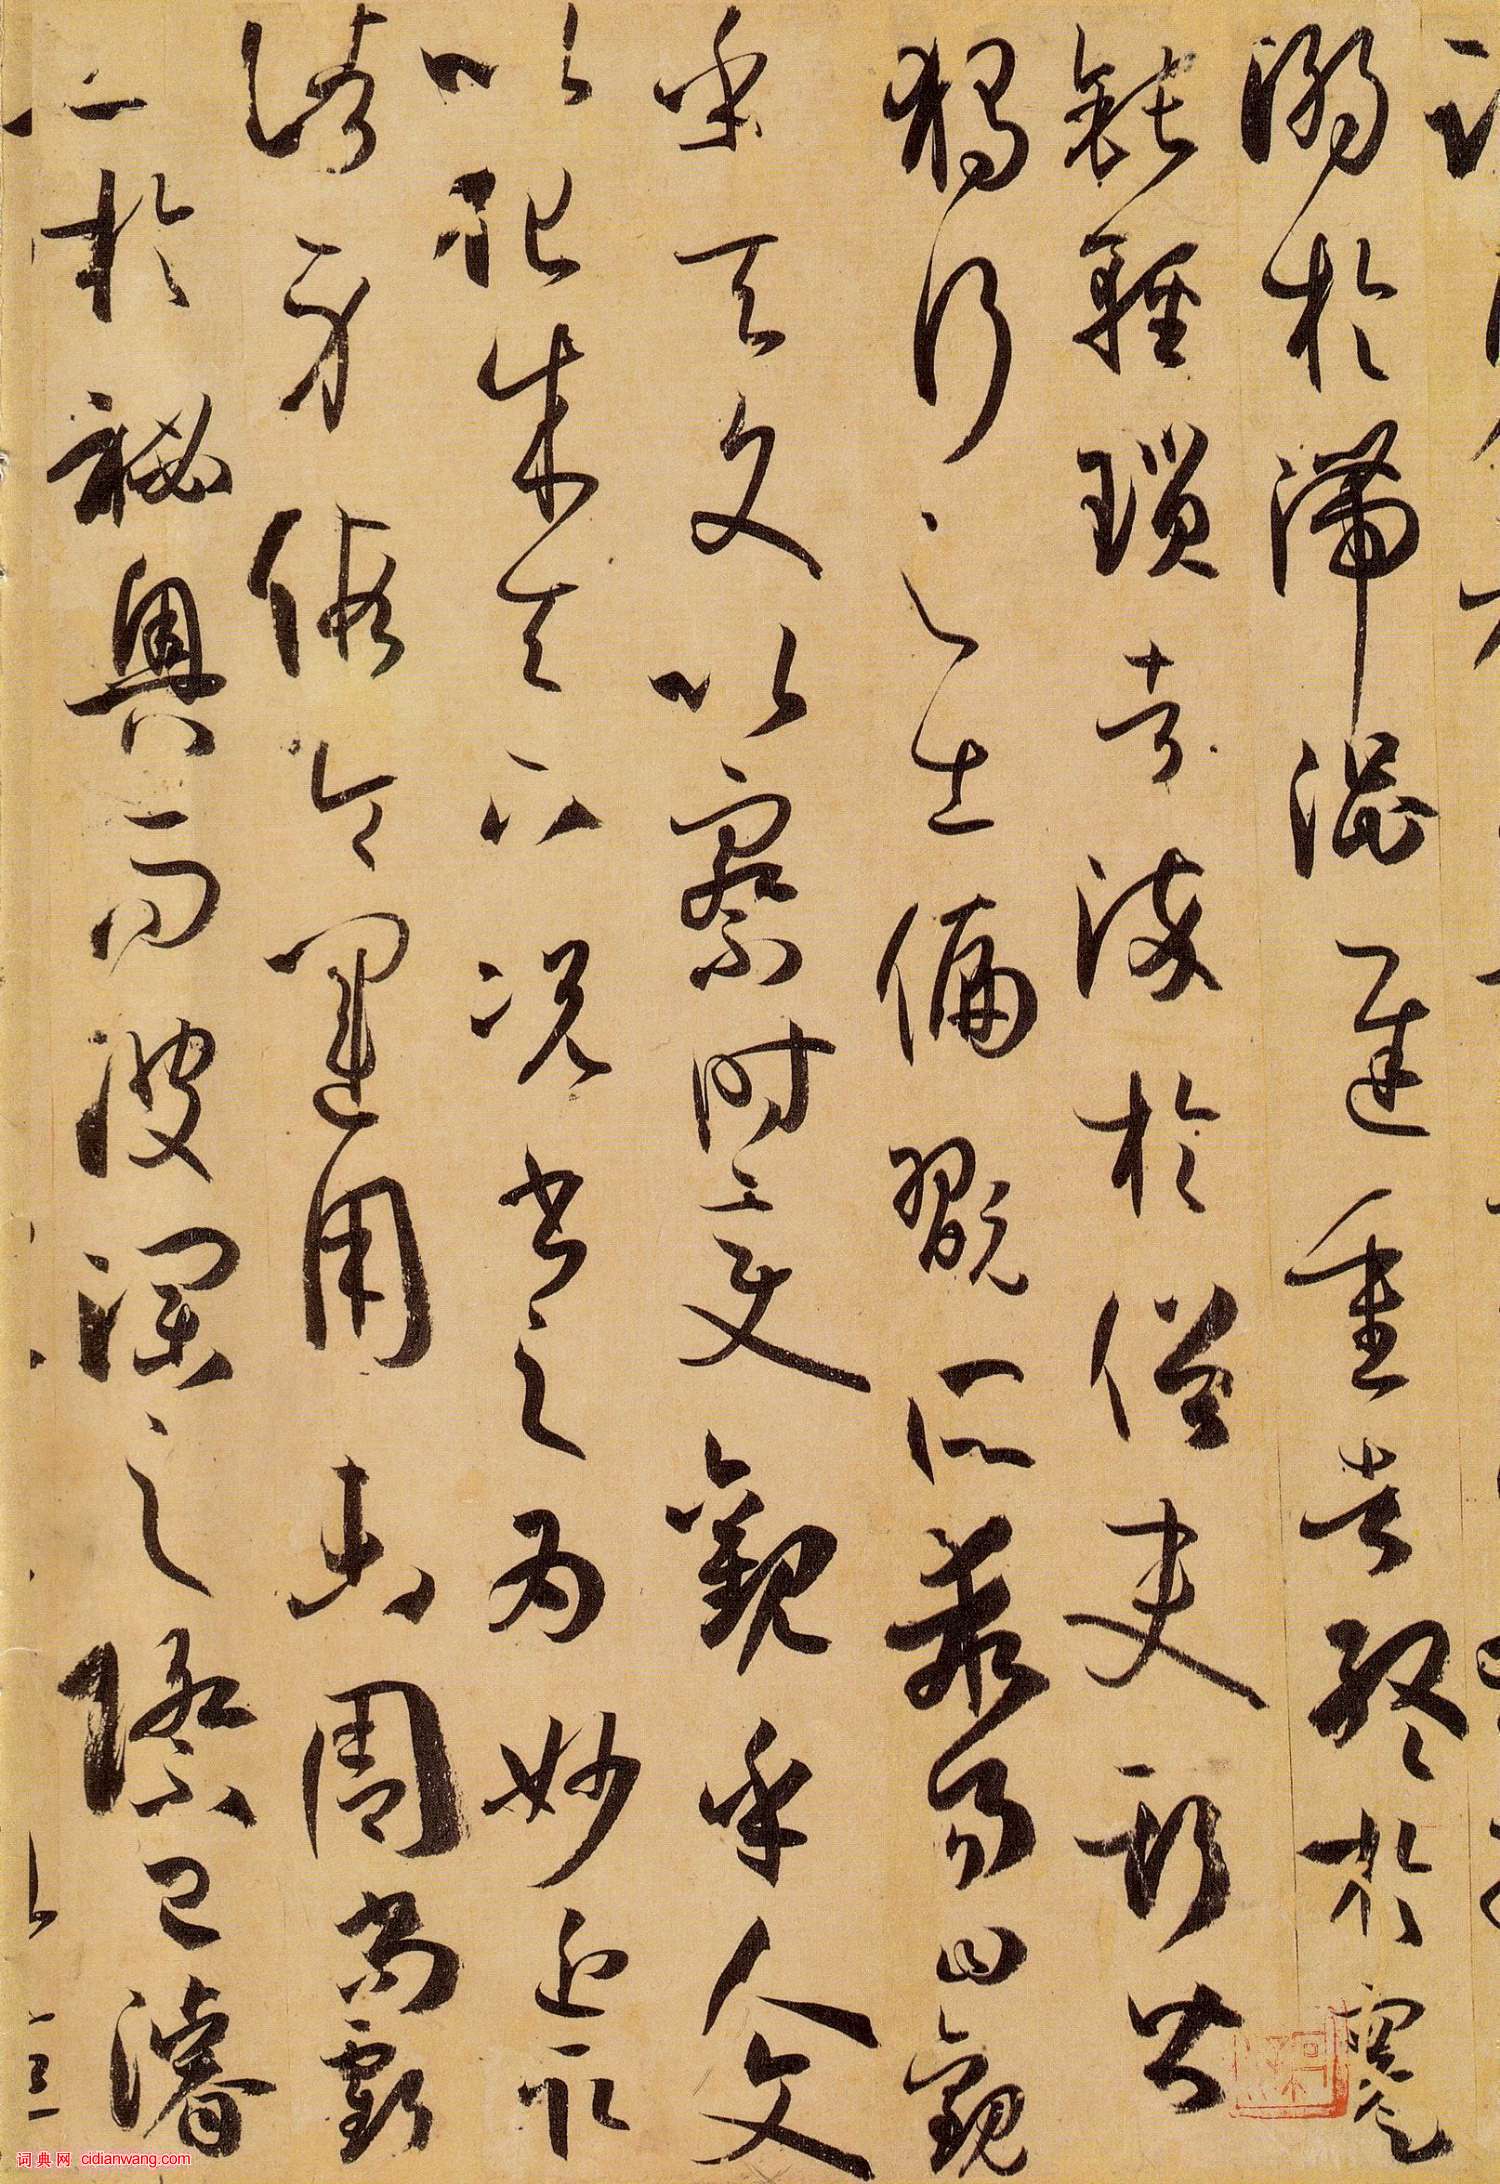 溺於滯澀遲重者終於蹇
鈍輕瑣者染於俗吏斯皆
獨行之士偏翫所乖易曰觀
乎天文以察時變觀乎人文
以化成天下況書之為妙近取
諸身假令運用未周尚虧
工於祕奧而波瀾之際已濬
词典网 cidianwang.com